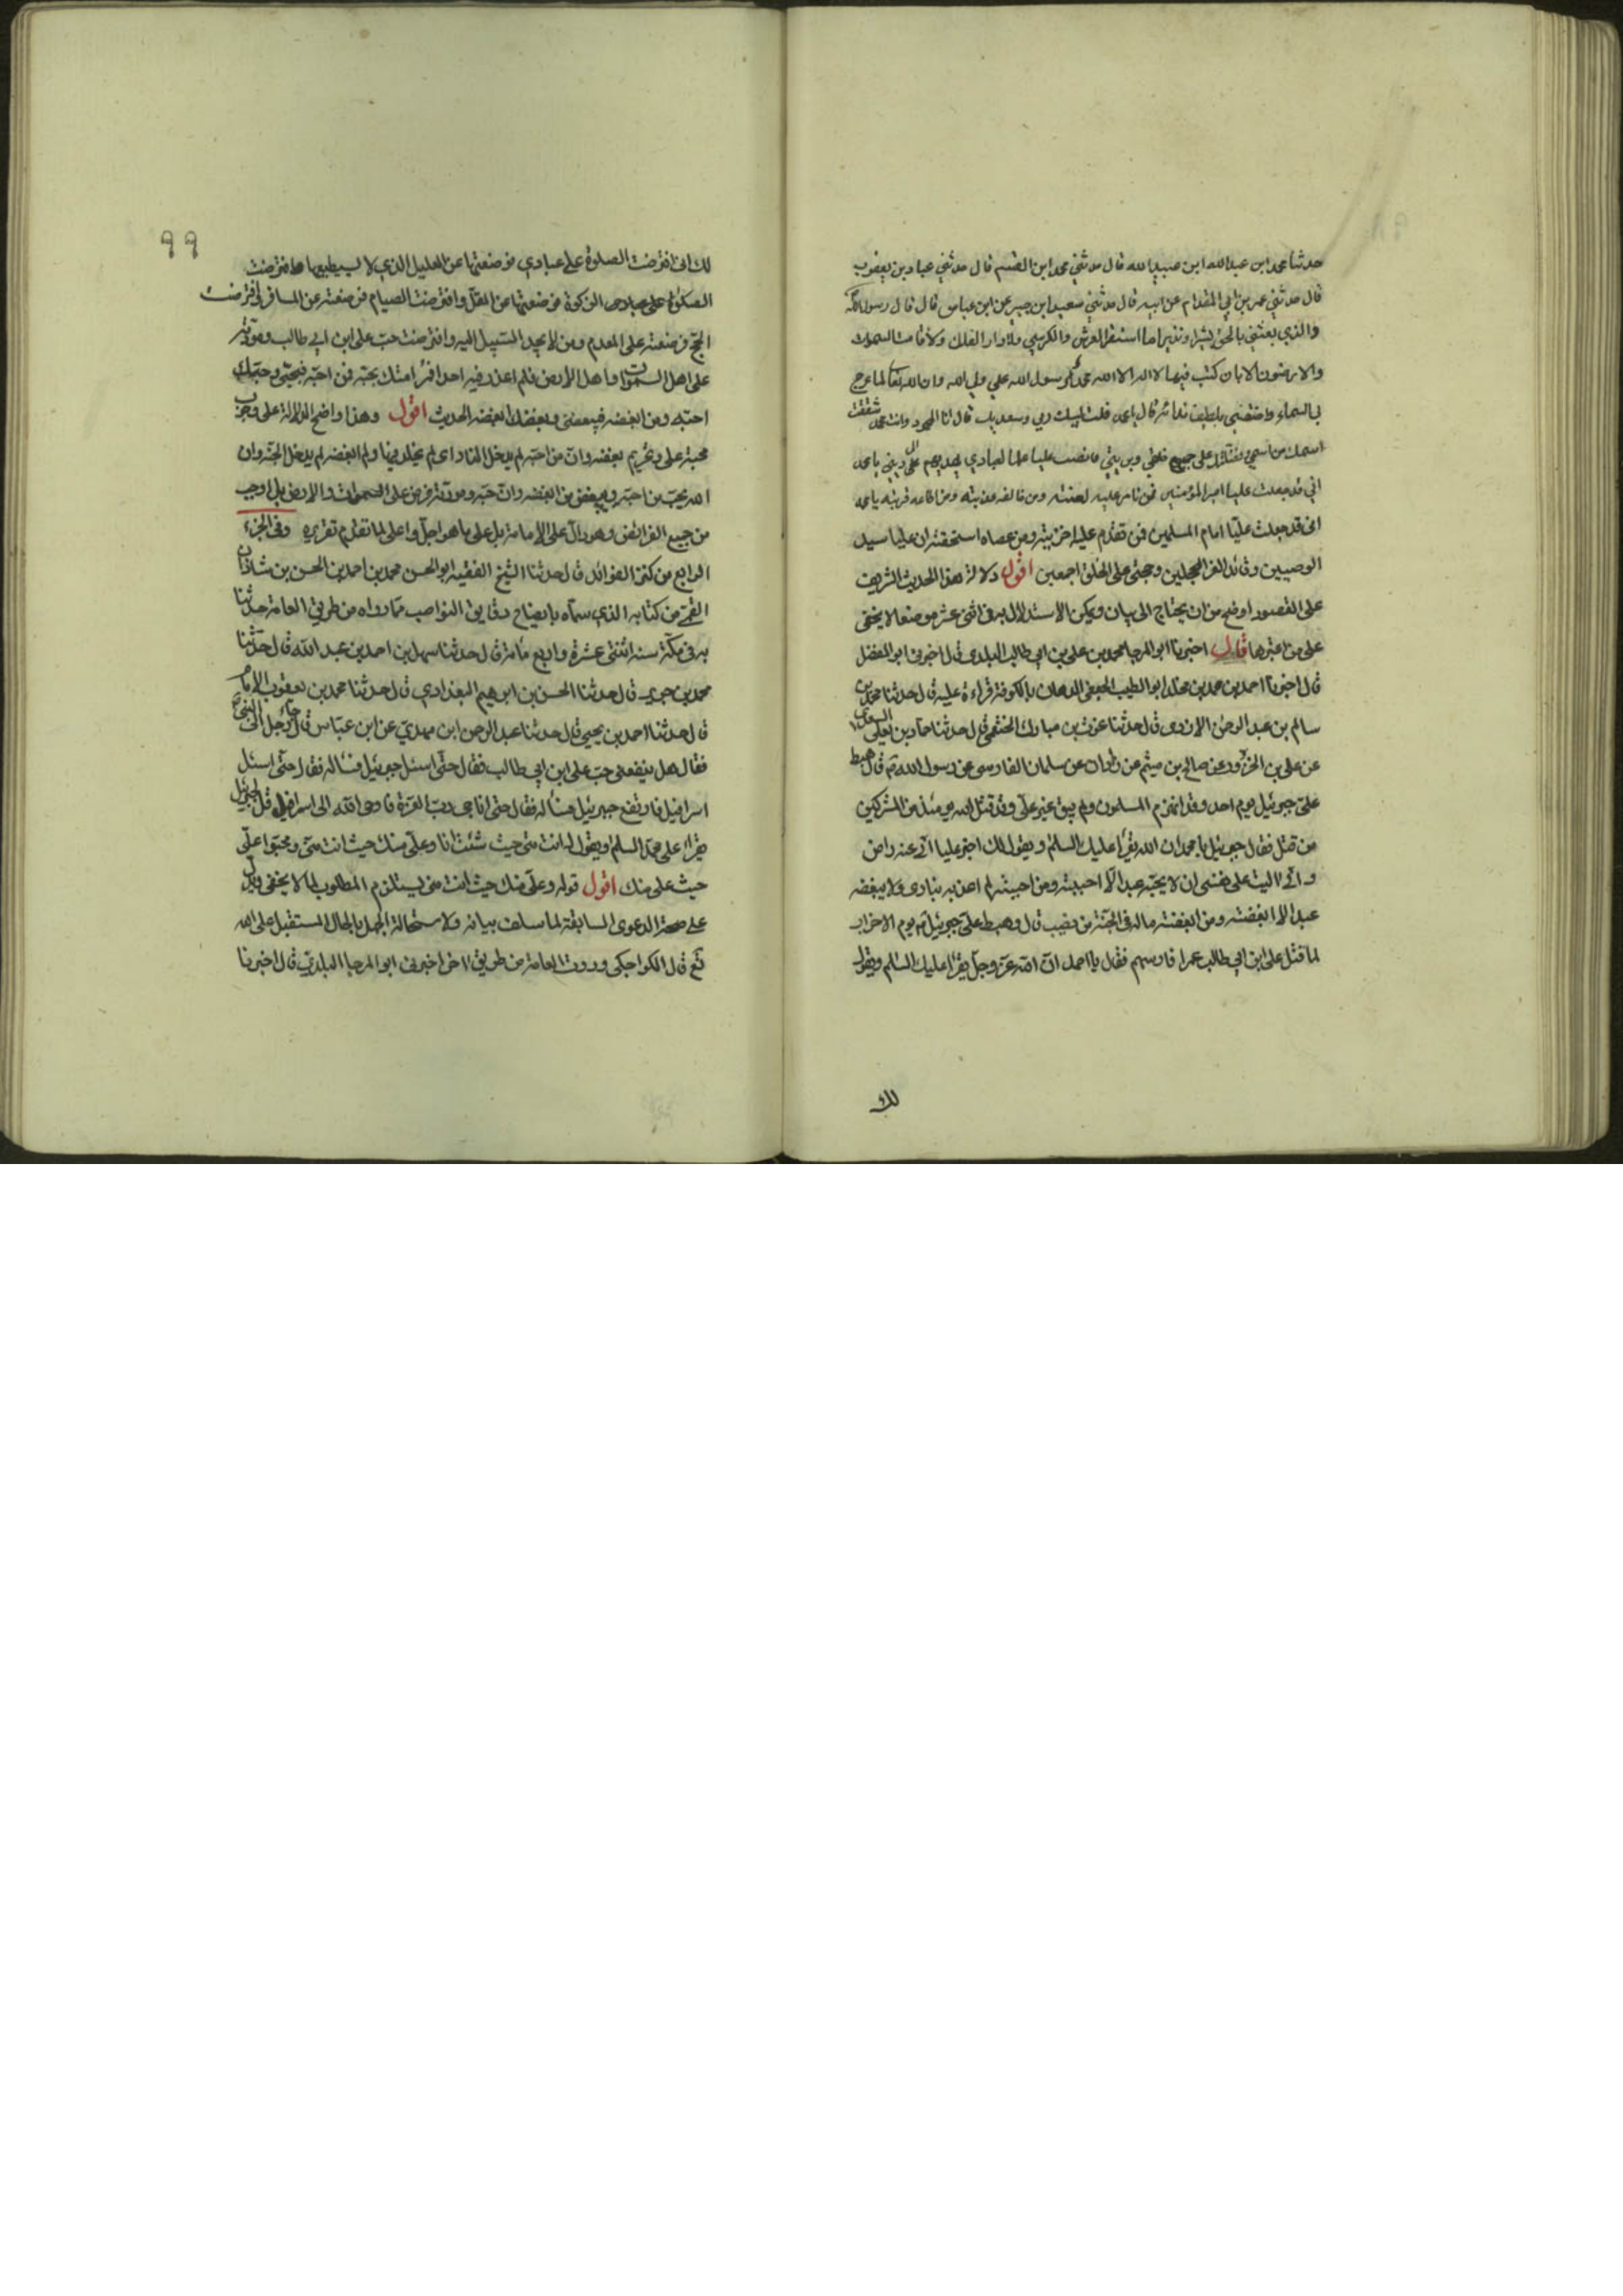 حدثنا محمد ابن عبد الله ابن عبيد الله قال حدثني محمد ابن القسم قال حدثني عباد بن يعقوب
قال حدثني عمر بن ابي المقدام عن ابيه قال حدثني سعيد ابن جبير عن ابن عباس قال قال رسول الله
والذي بعثني بالحق بشيرا ونذيرا ما استقر العرش والكرسي ولا دار الفلك ولا قامت السموات
والارضون الا بان كتب فيها لا اله الا الله محمد رسول الله علي ولي الله وان الله تعالى لما عرج
بي السماء واختصني بلطيف ندائه قال يا محمد قلت لبيك ربي وسعديك قال انا المحمود وانت محمد شققت
اسمك من اسمي وفضلتك على جميع خلقي وبريتي فانصب عليا علما لعبادي يهديهم الى ديني يا محمد
اني قد جعلت عليا امير المؤمنين فمن تامر عليه لعنته ومن خالفه عذبته ومن اطاعه قربته يا محمد
انى قد جعلت عليّا امام المسلمين فمن تقدم عليه اخزيته ومن عصاه استحقته ان عليا سيد
الوصيين وقائد الغر المحجلين وحجتى على الخلق اجمعين اقول دلالة هذا الحديث الشريف
على المقصود اوضح من ان يحتاج الى بيان ويمكن الاستدلال به فى اثنى عشر موضعا لا يخفى
على من اعتبرها قال اخبرنا ابو المرجا محمد بن على بن ابى طالب البلدى قال اخبرنى ابو المفضل
قال اخبرنا احمد بن محمد بن مخلد ابو الطيب الجعفى الدهان بالكوفة قراءة عليه قال حدثنا محمد بن
سالم بن عبد الرحمن الازدى قال حدثنا عون بن مبارك الخثعمى قال حدثنا حماد بن يعلى السعدى
عن على بن الحزور عن صالح بن ميثم عن زاذان عن سلمان الفارسى عن رسول الله ص قال هبط
علىّ جبرئيل يوم احد وقد انهزم المسلمون ولم يبق غير على وقد قتل الله يومئذ من المشركين
من قتل فقال جبرئيل يا محمد ان الله يقرأ عليك السلم ويقول لك اخبر عليا انى عنه راض
وانى اليت على نفسى ان لا يحبّه عبد الّا احببته ومن احببته لم اعذبه بنارى ولا يبغضه
عبد الا ابغضته ومن ابغضته ماله فى الجنّة من نصيب قال وهبط علىّ جبرئيل يوم الاحزاب
لما قتل على ابن ابي طالب عمرا فارسهم فقال يا احمد انّ الله عز وجل يقرأ عليك السلم ويقول
لك
٩٩
لك انى افترضت الصلوة على عبادي فوضعتها عن العليل الذي لا يستطيعها وافترضت
الزكوة فوضعتها عن المقلّ وافترضت الصيام فوضعته عن المسافر وافترضت
الحج فوضعته على المعدم ومن لا يجد السّبيل اليه وافترضت حبّ على ابن ابي طالب ومودّته
على اهل السموات واهل الارض فلم اعذر فيه احدا فمر امتك بحبّه فمن احبّه فبحبّى وحبّك
احبّه ومن ابغضه فببغضى وبغضك ابغضه الحديث اقول وهذا واضح الدلالة على وجوب
محبة على وتحريم بغضه وانّ من احبّه لم يدخل النار او لم يخلد فيها ولم ابغضه لم يدخل الجنّة وان
الله يحبّ من احبّه ويبغض من ابغضه وانّ حبّه ومودّته فرض على السموات والارض بل اوجب
من جميع الفرائض وهو دالّ على الامامة بل على ما هو اجلّ واعلى لما تقدّم تقريره وفى الجزء
الرابع من كنز الفوائد قال حدثنا الشيخ الفقيه ابو الحسن محمد بن احمد بن الحسن بن شاذان
القمّى من كتابه الذي سماه بايضاح دقايق النواصب ممّا رواه من طريق العامة حدثنا
به فى مكّة سنه اثنتى عشرة واربع مأة قال حدثنا سهل بن احمد بن عبد الله قال حدّثنا
محمد بن جرير قال حدثنا الحسن بن ابرهيم البغدادي قال حدثنا محمد بن يعقوب الامام
قال حدثنا احمد بن يحيى قال حدثنا عبد الرحمن ابن مهديّ عن ابن عبّاس قال جاء رجل الى النبى
فقال هل ينفعنى حبّ على ابن ابي طالب فقال حتّى اسئل جبرئيل فسأله فقال حتّى اسئل
اسرافيل فارتفع جبرئيل فسأله فقال حتى اناجى ربّ العزة فاوحى الله الى اسرافيل قل لجبرئيل
يقرا على محمّد السلم ويقول له انت منى حيث شئت انا وعلىّ منك حيث انت منّى ومحبّوا علىّ
حيث على منك اقول قوله وعلىّ منك حيث انت منى يستلزم المطلوب لما لا يخفى ويدلّ
على صحة الدعوى السابقة لما سلف بيانه ولاستحالة الجهل بالحال المستقبل على الله
تع قال الكراجكى وروت العامة من طريق اخر اخبرنى ابو المرجا البلدى قال اخبرنا